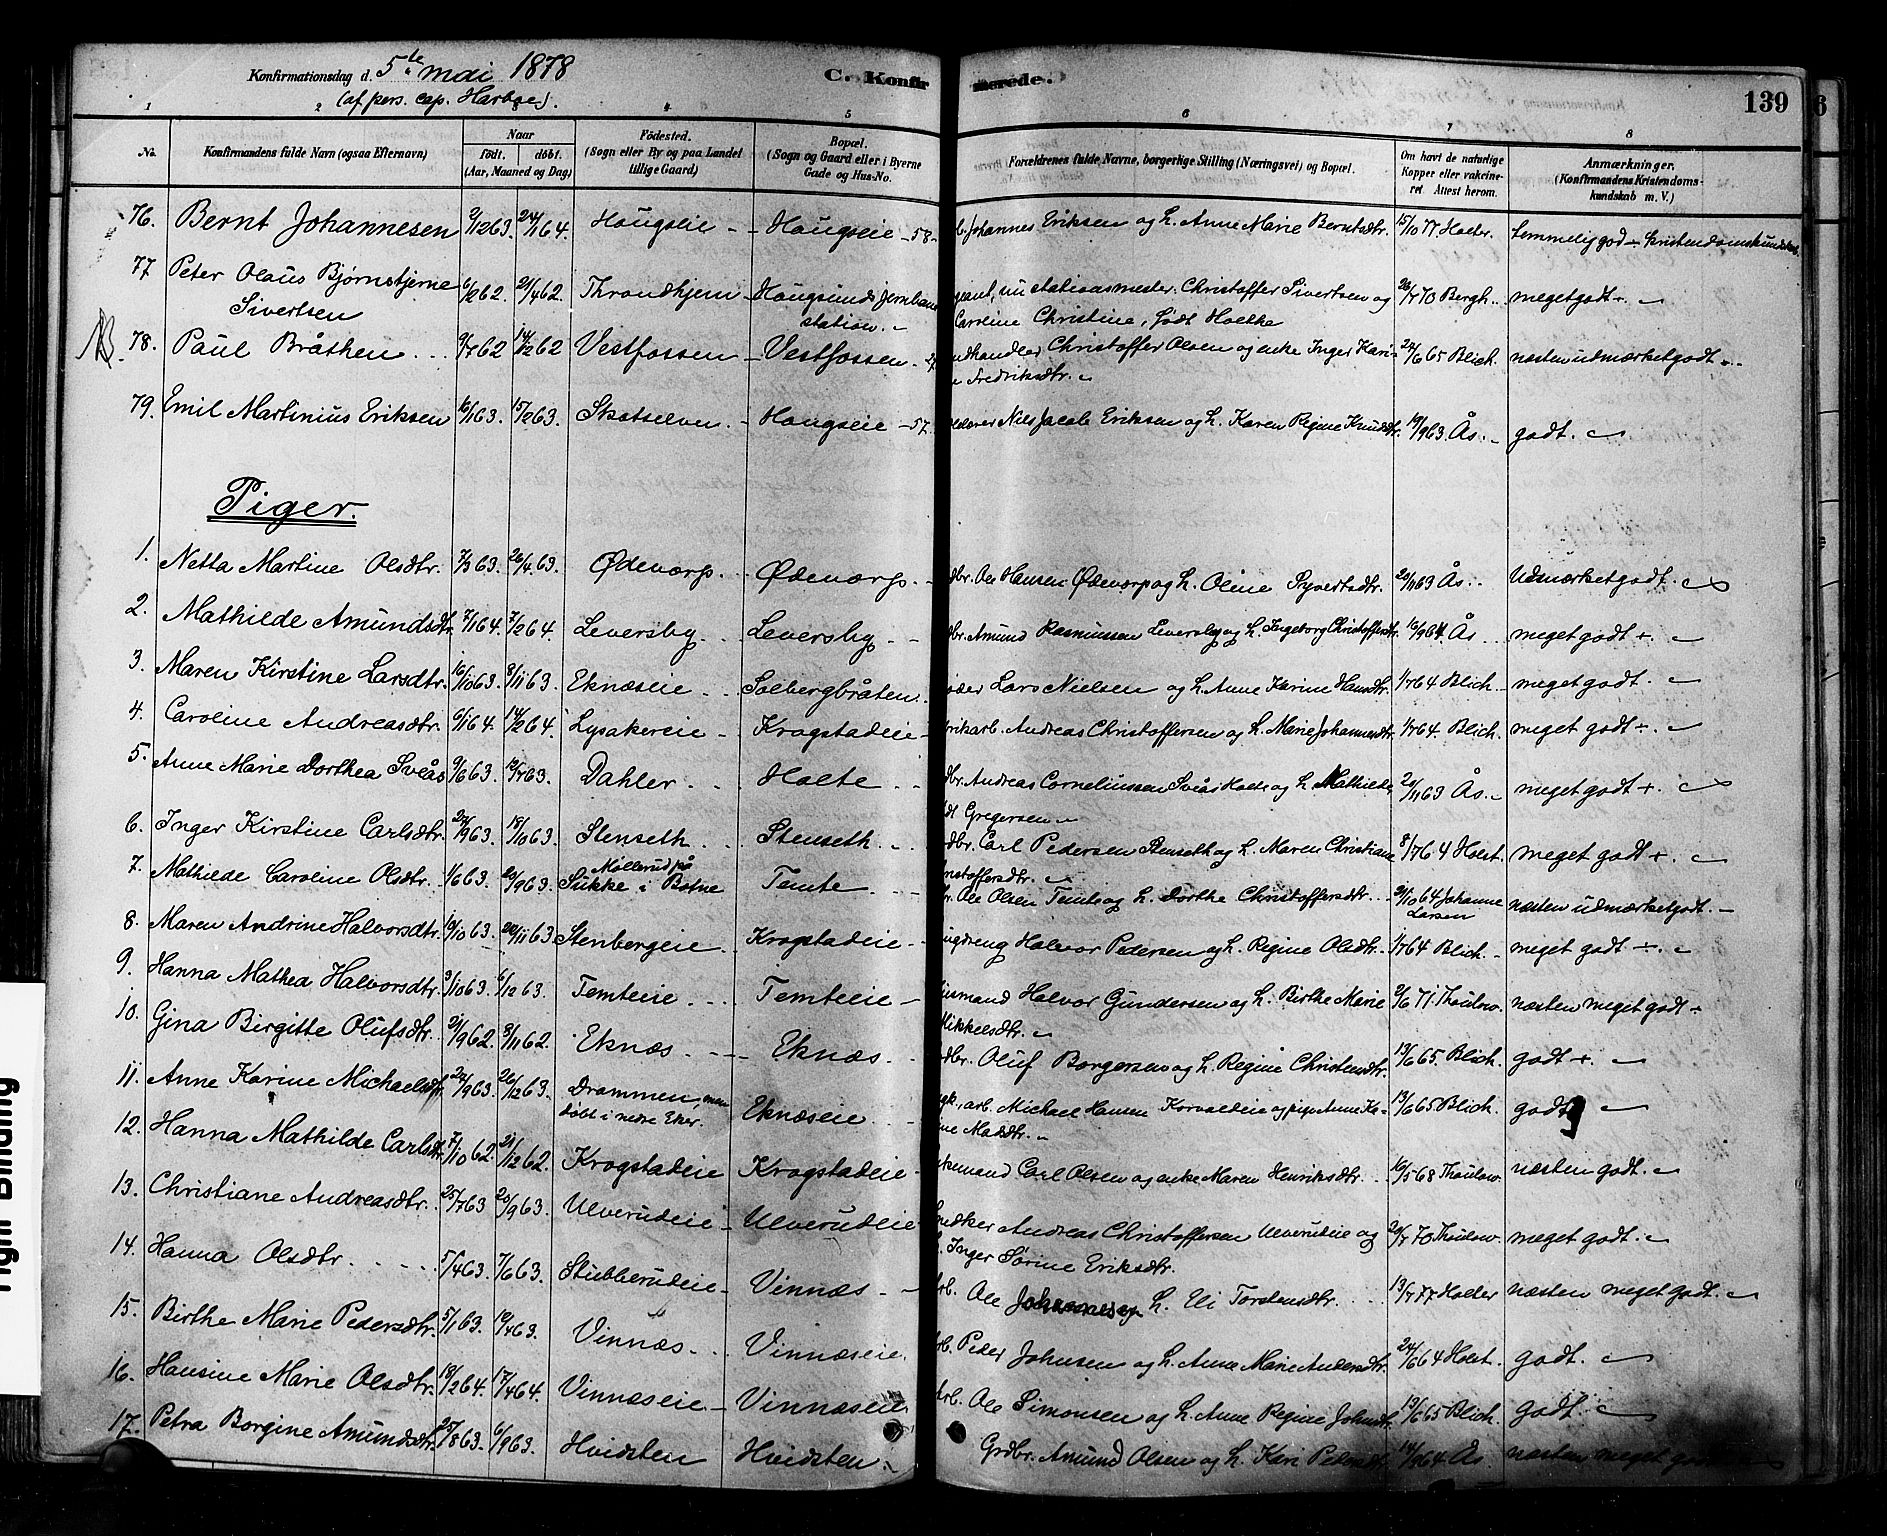 Konfirmationsdag d. 5te mai 1878
(af pers. cap. Harboe).
C. Konfirmerede.
139
1 2 3 4 5 6 7 8
No. Konfirmandens fulde Navn (ogsaa Efternavn) Naar født. døbt. (Aar, Maaned og Dag) Fødested. (Sogn eller By og paa Landet tillige Gaard.) Bopæl. (Sogn og Gaard eller i Byerne Gade og Hus-No. Forældrenes fulde Navne, borgerlige Stilling (Næringsvei) og Bopæl. Om havt de naturlige Kopper eller vakcineret. Attest herom. Anmærkninger, (Konfirmandens Kristendomskundskab m. V.)
76. Bernt Johannesen 9/12 63. 24/1 64. Hougseie Hougseie 58 Johannes Eriksen og h. Anne Marie Berntsdtr. 15/10 77 Holter. temmelig god Kristendomskundskab
77 Peter Olaus Bjørnstjerne 6/2 62. 21/4 62. Throndhjem Hougsunds jernbane nu stationsmester Christoffer Sivertsen og 26/7 70 Bergh. meget godt
Sivertsen station. Caroline Christine, født Holtke
NB. 78. Paul Bråthen 9/7 62 14/12 62 Vestfossen Vestfossen Christoffer Olsen og enke Inger Kari- 24/6 65 Blich. næsten udmærket godt
Fredriksdtr.
79. Emil Martinius Eriksen 16/1 63. 15/2 63. Skotselven Hougseie 57. Nils Jacob Eriksen og h. Karen Regine Knudsdtr. 19/9 63. Ås. godt.
Piger.
1. Netta Martine Olsdtr. 7/3 63. 26/4 63. Ødevorp. Ødevorp. dbr. Ole Hansen Ødevorp og h. Oline Syvertsdtr. 20/11 63 Ås. Udmærket godt.
2. Mathilde Amundsdtr. 7/1 64. 7/2 64. Leversby. Leversby. dbr. Amund Rasmussen Leversby og h. Ingeborg Christoffersdtr. 16/9 64 Ås meget godt +.
3. Maren Kirstine Larsdtr. 16/10 63. 8/11 63. Eknæseie Solbergbråten Lars Nielsen og h. Anne Karine Hansdtr. 1/7 64 Blich. meget godt.
4. Caroline Andreasdtr. 6/1 64. 14/2 64. Lysakereie Krogstadeie rikarb. Andreas Christoffersen og h. Marie Johannesdtr. 1/7 64. Blich. meget godt ÷.
5. Anne Marie Dorthea Svéås 9/6 63. 12/7 63. Dahler. Holte dbr. Andreas Corneliussen Svéås Holte og h. Mathilde 20/11 63 Ås. meget godt +.
Gregersen
6. Inger Kirstine Carlsdtr. 24/9 63. 18/10 63. Stenseth Stenseth. dbr. Carl Pedersen Stenseth og h. Maren Christiane 8/7 64 Holst. meget godt +.
nstoffersdtr.
7. Mathilde Caroline Olsdtr. 1/6 63. 20/9 63. Møllerud på Sukke i Botne Temte Ole Olsen Temte og h. Dorthe Christoffersdtr. 2/10 64 Johanne Larsen næsten udmærket godt.
8. Maren Andrine Halvorsdtr. 19/10 63. 20/11 63 Stenbergeie. Krogstadeie ngdreng Halvor Pedersen og h. Regine Olsdtr. 1/7 64 Blich. meget godt ÷.
9. Hanna Mathea Halvorsdtr. 3/10 63. 6/12 63. Temteie Temteie usmand Halvor Gundersen og h. Birthe Marie 2/6 71. Thaulow. næsten meget godt
Mikkelsdtr.
10. Gina Birgitte Olufsdtr. 21/9 62. 9/11 62. Eknæs Eknæs. dbr. Oluf Borgersen og h. Regine Christensdtr. 13/6 65. Blich. godt +.
11. Anne Karine Michaelsdtr. 24/9 63. 26/12 63. Drammen, men døbt i nedre Eker. Eknæseie arb. Michael Hansen Korvaldeie og pige Anne Ka- 13/6 65 Blich. godt
ne Madsdtr.
12. Hanna Mathilde Carlsdtr. 7/10 62. 21/12 62. Krogstadeie Krogstadeie Carl Olsen og enke Maren Henriksdtr. 16/5 68 Thaulow. næsten godt.
13. Christiane Andreasdtr. 25/7 63 20/9 63. Ulverudeie Ulverudeie Andreas Christoffersen Ulverudeie og 20/7 70 Thaulow. meget godt.
Inger Sørine Eriksdtr.
14. Hanna Olsdtr. 5/4 63. 7/6 63. Stubberudeie Vinnæs arb. Ole Johannesen og h. Eli Torstensdtr. 13/7 77 Holter næsten meget godt.
15. Birthe Marie Pedersdtr. 5/1 63. 19/4 63. Vinnæs. Vinnæseie. Peder Johnsen og h. Anne Marie Andersdtr. 24/6 64 Holst. godt.
16. Hansine Marie Olsdtr. 18/2 64. 17/4 64. Vinnæseie. Vinnæseie arb. Ole Simonsen og h. Anne Regine Johnsdtr. 13/6 65 Blich. godt
17. Petra Borgine Amundsdtr. 25/8 63. 6/9 63. Hvidsten Hvidsten. Grdbr. Amund Olsen og h. Kari Pedersdtr. 14/9 64 Ås. næsten meget godt
Right Binding